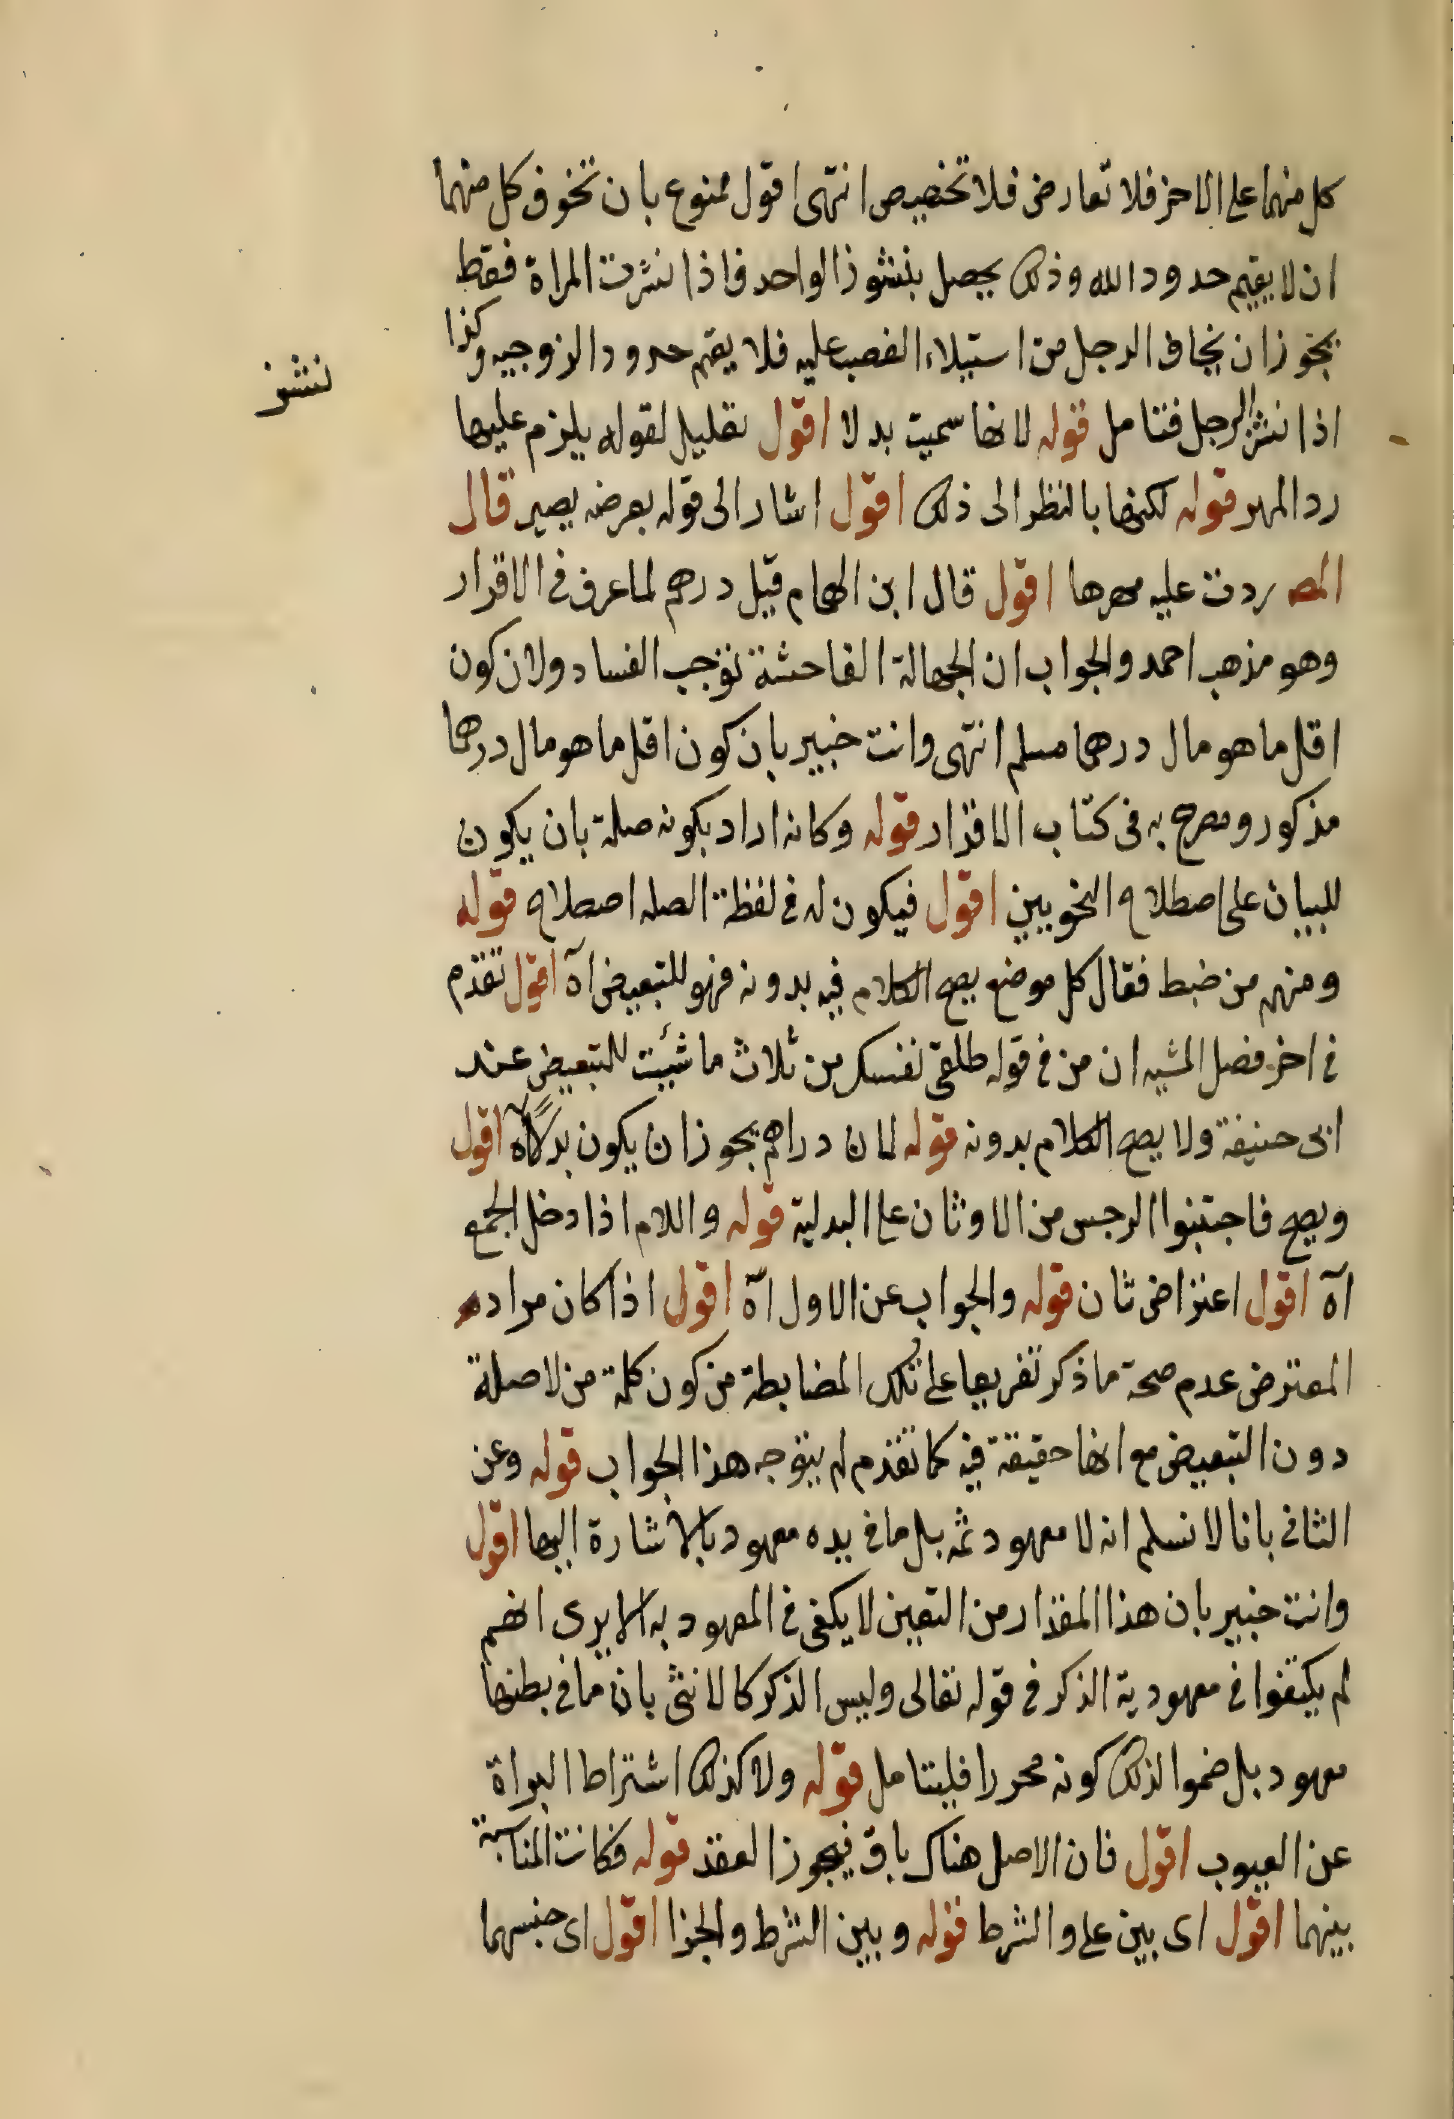 كل منهما على الاخر فلا تعارض فلا تخصيص انتهى اقول ممنوع بان تخوف كل منهما
ان لا يقيم حدود الله وذلك يحصل بنشوز الواحد فاذا نشزت المراة فقط
يجوز ان يخاف الرجل من استيلاء الغضب عليه فلا يقيم حدود الزوجيه وكذا
نشز
اذا نشز الرجل فتامل قوله لانها سميت بدلا اقول تعليل لقوله يلزم عليها
رد المهر قوله لكنها بالنظر الى ذلك اقول اشار الى قوله بعرضه يصير قال
المص ردت عليه مهرها اقول قال ابن الهمام قيل درهم لما عرف في الاقرار
وهو مذهب احمد والجواب ان الجهالة الفاحشة توجب الفساد ولان كون
اقل ما هو مال درهما مسلم انتهى وانت خبير بان كون اقل ما هو مال درهما
مذكور ومصرح به فى كتاب الاقرار قوله وكانه اراد بكونه صلة بان يكون
للبيان على اصطلاح النحويين اقول فيكون له في لفظة الصله اصطلاح قوله
ومنهم من ضبط فقال كل موضع يصح الكلام فيه بدونه فهو للتبعيض اه اقول تقدم
في اخر فصل المشيه ان من في قوله طلقى نفسك من ثلاث ما شئت للتبعيض عند
ابى حنيفة ولا يصح الكلام بدونه قوله لان دراهم يجوز ان يكون بدلا اه اقول
ويصح فاجتنبوا الرجس من الاوثان على البدلية قوله واللام اذا دخل الجمع
اه اقول اعتراض ثان قوله والجواب عن الاول اه اقول اذا كان مراده
المعترض عدم صحة ما ذكر تفريعا على تلك الضابطة من كون كلمة من لا صلة
دون التبعيض مع انها حقيقة فيه كما تقدم لم يتوجه هذا الجواب قوله وعن
الثانى بانا لا نسلم انه لا معهود ثمه بل ما فى يده معهود بالاشارة اليها اقول
وانت خبير بان هذا المقدار من التعين لا يكفى في المعهود به الا يرى انهم
لم يكتفوا فى معهودية الذكر فى قوله تعالى وليس الذكر كالانثى بان ما فى بطنها
معهود بل ضموا لذلك كونه محررا فليتامل قوله ولا كذلك اشتراط البراة
عن العيوب اقول فان الاصل هناك باق فيجوز العقد قوله فكانت المناسبة
بينهما اقول اى بين على والشرط قوله وبين الشرط والجزا اقول اى جنسهما